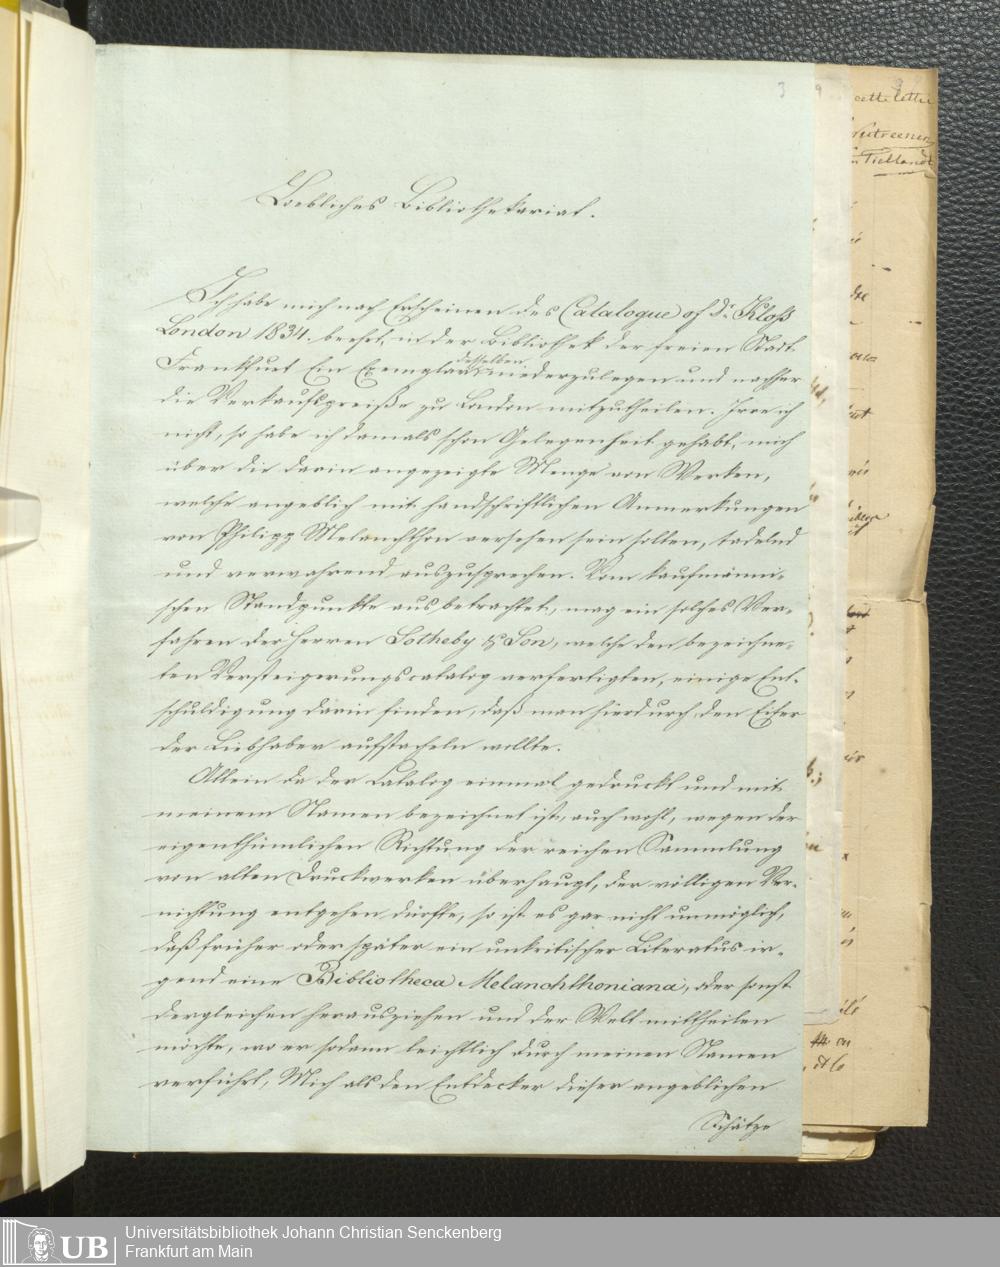 3
9
9
cette lettre
Loebliches Bibliothekariat.
Ich habe mich nach Erscheinen des Catalogue of Dr. Kloß
London 1834. beehrt, in der Bibliothek der freien Stadt
Frankfurt Ein Exemplar desselben niederzulegen und nachher
die Verkaufspreiße zu London mitzutheilen. Irre ich
nicht, so habe ich damals schon Gelegenheit gehabt, mich
über die darin angezeigte Menge von Werken,
welche angeblich mit handschriftlichen Anmerkungen
von Philipp Melanchthon versehen sein sollten, tadelnd
und verwahrend auszusprechen. Vom kaufmänni-
schen Standpunkte aus betrachtet, mag ein solches Ver-
fahren der Herren Sotheby & Son, welche den bezeichne-
ten Versteigerungscatalog verfertigten, einige Ent-
schuldigung darin finden, daß man hierdurch den Eifer
der Liebhaber aufstacheln wollte.
Allein da der Catalog einmal gedruckt und mit
meinem Namen bezeichnet ist, auch wohl, wegen der
eigenthümlichen Richtung der reichen Sammlung
von alten Druckwerken überhaupt, der völligen Ver-
nichtung entgehen dürfte, so ist es gar nicht unmöglich,
daß früher oder später ein unkritischer Literatus ir-
gend eine Bibliotheca Melanchthoniana, oder sonst
dergleichen herausziehen und der Welt mittheilen
möchte, wo er sodann leichtlich durch meinen Namen
verführt, Mich als den Entdecker dieser angeblichen
Schätze
UB
Universitätsbibliothek Johann Christian Senckenberg
Frankfurt am Main